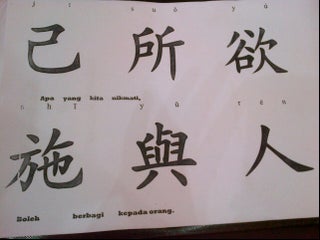 jǐ suǒ yù
己 所 欲
Apa yang kita nikmati,
shī yǔ rén
施 與 人
Boleh berbagi kepada orang.